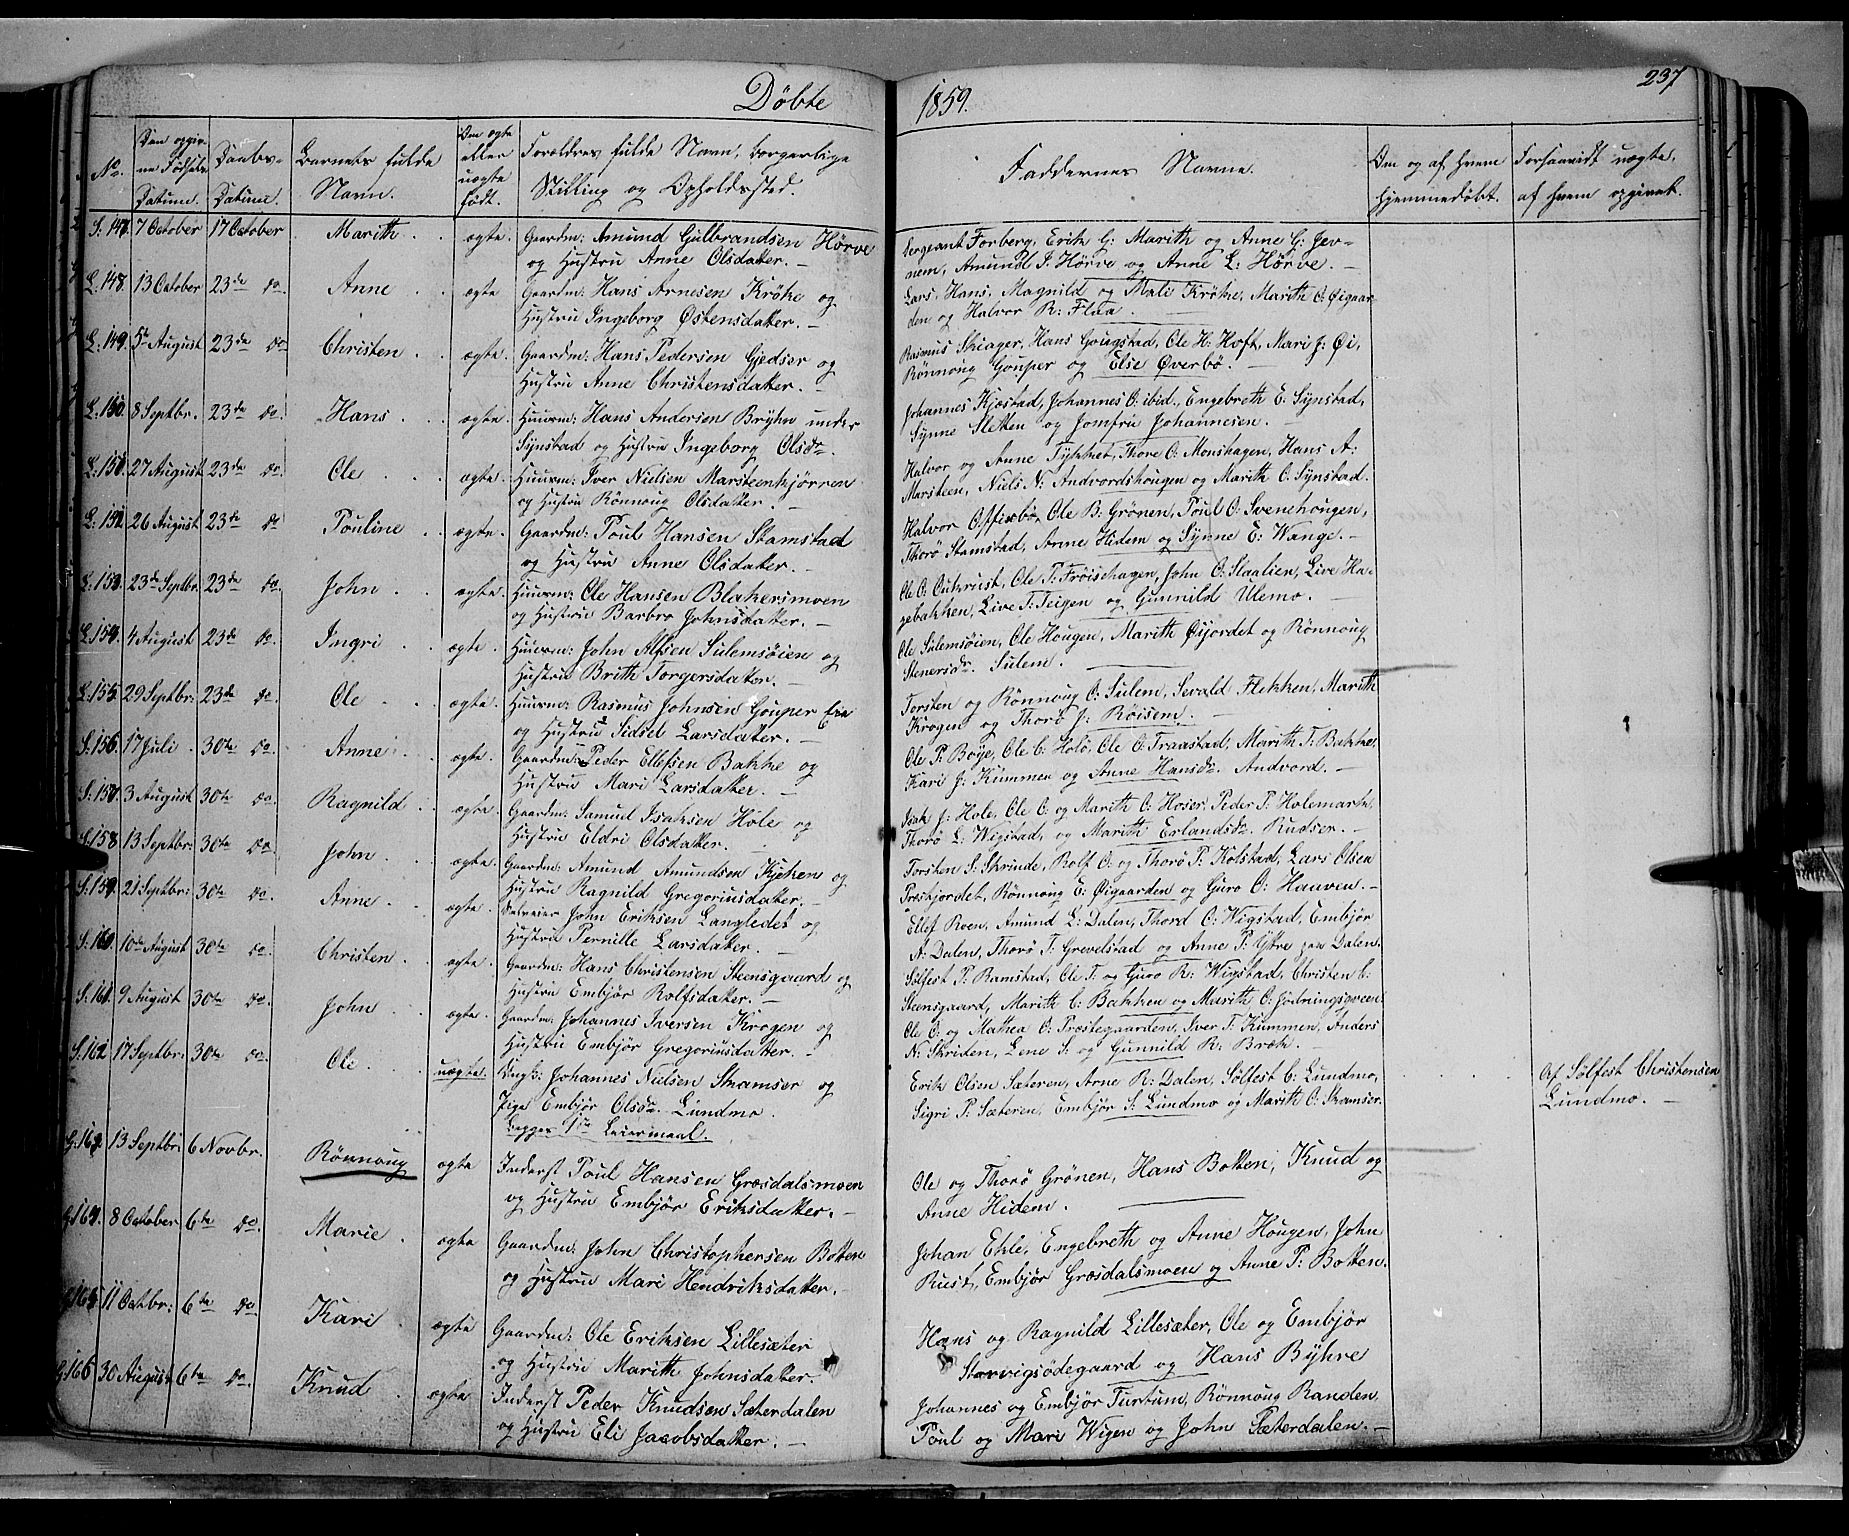 Döbte
1859.
237
No.
Den opgiv-
ne Födsels
Datum.
Daabs-
Datum.
Barnets fulde
Navn.
Om ægte
eller
uægte
födt.
Forældres fulde Navn, borgerlige
Stilling og Opholdssted.
Faddernes Navne.
Om og af hvem
hjemmedöbt.
Forsaavidt uægte,
af hvem opgivet.
S: 147. 7 October 17 October Marith . . ægte. Gaardm: Amund Gulbrandsen Hörve
og Hustru Anne Olsdatter. —
Sergeant Forberg, Erik G: Marith og Anne G: Jev-
nem, Amund P: Hörve og Anne L: Hörve. —
L. 148. 13 October 23de do. Anne . . ægte Gaardm: Hans Arnesen Kröke og
Hustru Ingeborg Östensdatter. —
Lars, Hans, Magnild og Mali Kröke, Marith O: Öigaar-
den og Halvor R: Flaa. —
L: 149. 5te August 23de do Christen . . ægte. Gaardm: Hans Pedersen Gjedser og
Hustru Anne Christensdatter. —
Rasmus Skiager, Hans Gougstad, Ole H: Hoft, Mari J: Öi,
Rönnoug Gouper og Else Överbö. —
L. 150. 8 Septbr. 23de do. Hans . . ægte. Huusm: Hans Andersen Brÿhn under
Sÿnstad og Hustru Ingeborg Olsdr. —
Johannes Kjæstad, Johannes O: ibid., Engebreth E: Sÿnstad,
Sÿnne Sletten og Jomfru Johannesen. —
L. 151. 27 August 23de do. Ole . . ægte. Huusm: Iver Nielsen Marsteenkjörren
og Hustru Rönnoug Olsdatter. —
Halvor og Anne Tÿkket, Thore O: Monshagen, Hans A:
Marsteen, Niels N: Andvordshougen og Marith O: Sÿnstad.
L: 152. 26 August 23de do Pouline . . ægte. Gaardm: Poul Hansen Stamstad
og Hustru Anne Olsdatter. —
Halvor Offisbö, Ole B: Grönen, Poul O: Svenshougen,
Thorö Stamstad, Anne Hidem og Sÿnne E: Wange. —
L. 153. 23de Septbr. 23de do. John . . ægte. Huusm: Ole Hansen Blakersmoen
og Hustru Barbro Johnsdatter. —
Ole O: Outhrust, Ole P: Fröischagen, John O: Slaalien, Live Ha-
gebakken, Live T: Teigen og Gunnild Ulemo. —
L. 154. 4 August 23de do. Ingri . . ægte. Huusm: John Alfsen Sulemsöien og
Hustru Brith Torgersdatter. —
Ole Sulemsöien, Ole Hougen, Marith Öijordet og Rönnoug
Stenersdr. Sulem.
L. 155. 29 Septbr: 23de do Ole . . ægte. Huusm: Rasmus Johnsen Gouper Eie
og Hustru Sidsel Larsdatter. —
Torsten og Rönnoug O: Sulem, Sevald Flekken, Marith
Krogen og Thorö J: Röisem. —
S: 156. 17 Juli . 30te do. Anne . . ægte. Gaardm: Peder Ellefsen Bakke og
Hustru Mari Larsdatter. —
Ole P: Böye, Ole C: Holö, Ole O: Traastad, Marith T: Bakke,
Kari J: Kummen og Anne Hansdr. Andvord. —
S: 157. 3 August 30te do. Ragnild . . ægte. Gaardm: Samuel Isaksen Hole og
Hustru Eldri Olsdatter. —
Isak J: Hole, Ole O: og Marith O: Hoser, Peder P: Holemark,
Thorö L: Wigstad, og Marith Erlandsdr. Rudser. —
S: 158 13 Septbr: 30te do. John . . ægte. Gaardm: Amund Amundsen Kjeken og
Hustru Ragnild Gregoriusdatter. —
Torsten S: Skrinde, Rolf O: og Thorö P: Kolstad, Lars Olsen
Prestjordet, Rönnoug E: Öigaarden og Guro O: Haaven. —
S: 159. 21 Septbr: 30te do. Anne . . ægte. Selveier John Eriksen Langledet og
Hustru Pernille Larsdatter. —
Ellef Roen, Amund L: Dalen, Thord O: Wigstad, Embjör
A: Dalen, Thorö T: Grevelstad og Anne P: Ÿttre paa Dalen.
S: 160. 10de August 30te do. Christen . . ægte. Gaardm: Hans Christensen Steensgaard og
Hustru Embjör Rolfsdatter. —
Sölfest P: Ramstad, Ole T: og Guro R: Wigstad, Christen C:
Steensgaard, Marith C: Bakken og Marith O: Gödningsgveen
S: 161. 9 August 30te do. John . . ægte. Gaardm: Johannes Iversen Krogen og
Hustru Embjör Gregoriusdatter. —
Ole O: og Mathea O: Præstegaarden, Iver T: Kummen, Anders
N: Skriden, Lene S: og Gunnild R: Bræk. —
S: 162 17 Septbr: 30te do. Ole . . uægte. Ungk: Johannes Nielsen Skamser og
Pige Embjör Olsdr. Lundmo.
Begges 1ste Leiermaal.
Erik Olsen Sæteren, Arne R: Dalen, Sölfest C: Lundmo,
Sigri P: Sæteren, Embjör S: Lundmo og Marith O: Skamser.
Af Sölfest Christensen
Lundmo. —
G: 163. 13 Septbr: 6 Novbr. Rönnoug ægte Inderst Poul Hansen Græsdalsmoen
og Hustru Embjör Eriksdatter. —
Ole og Thorö Grönen, Hans Botten, Knud og
Anne Hidem.
G: 164. 8 October 6te do. Marie . ægte Gaardm: John Christophersen Botten
og Hustru Mari Hendriksdatter. —
Johan Ehle, Engebreth og Anne Hougen, John
Rust, Embjör Græsdalsmoen og Anne P: Botten.
G: 165 11 Octbr: 6te do. Kari . ægte Gaardm: Ole Eriksen Lillesæter
og Hustru Marith Johnsdatter.
Hans og Ragnild Lillesæter, Ole og Embjör
Storvigsödegaard og Hans Bÿhre
G: 166 30 August 6te do. Knud . ægte Inderst Peder Knudsen Sæterdalen
og Hustru Eli Jacobsdatter. —
Johannes og Embjör Turtum, Rönnoug Randen,
Poul og Mari Wigen og John Sæterdalen. —